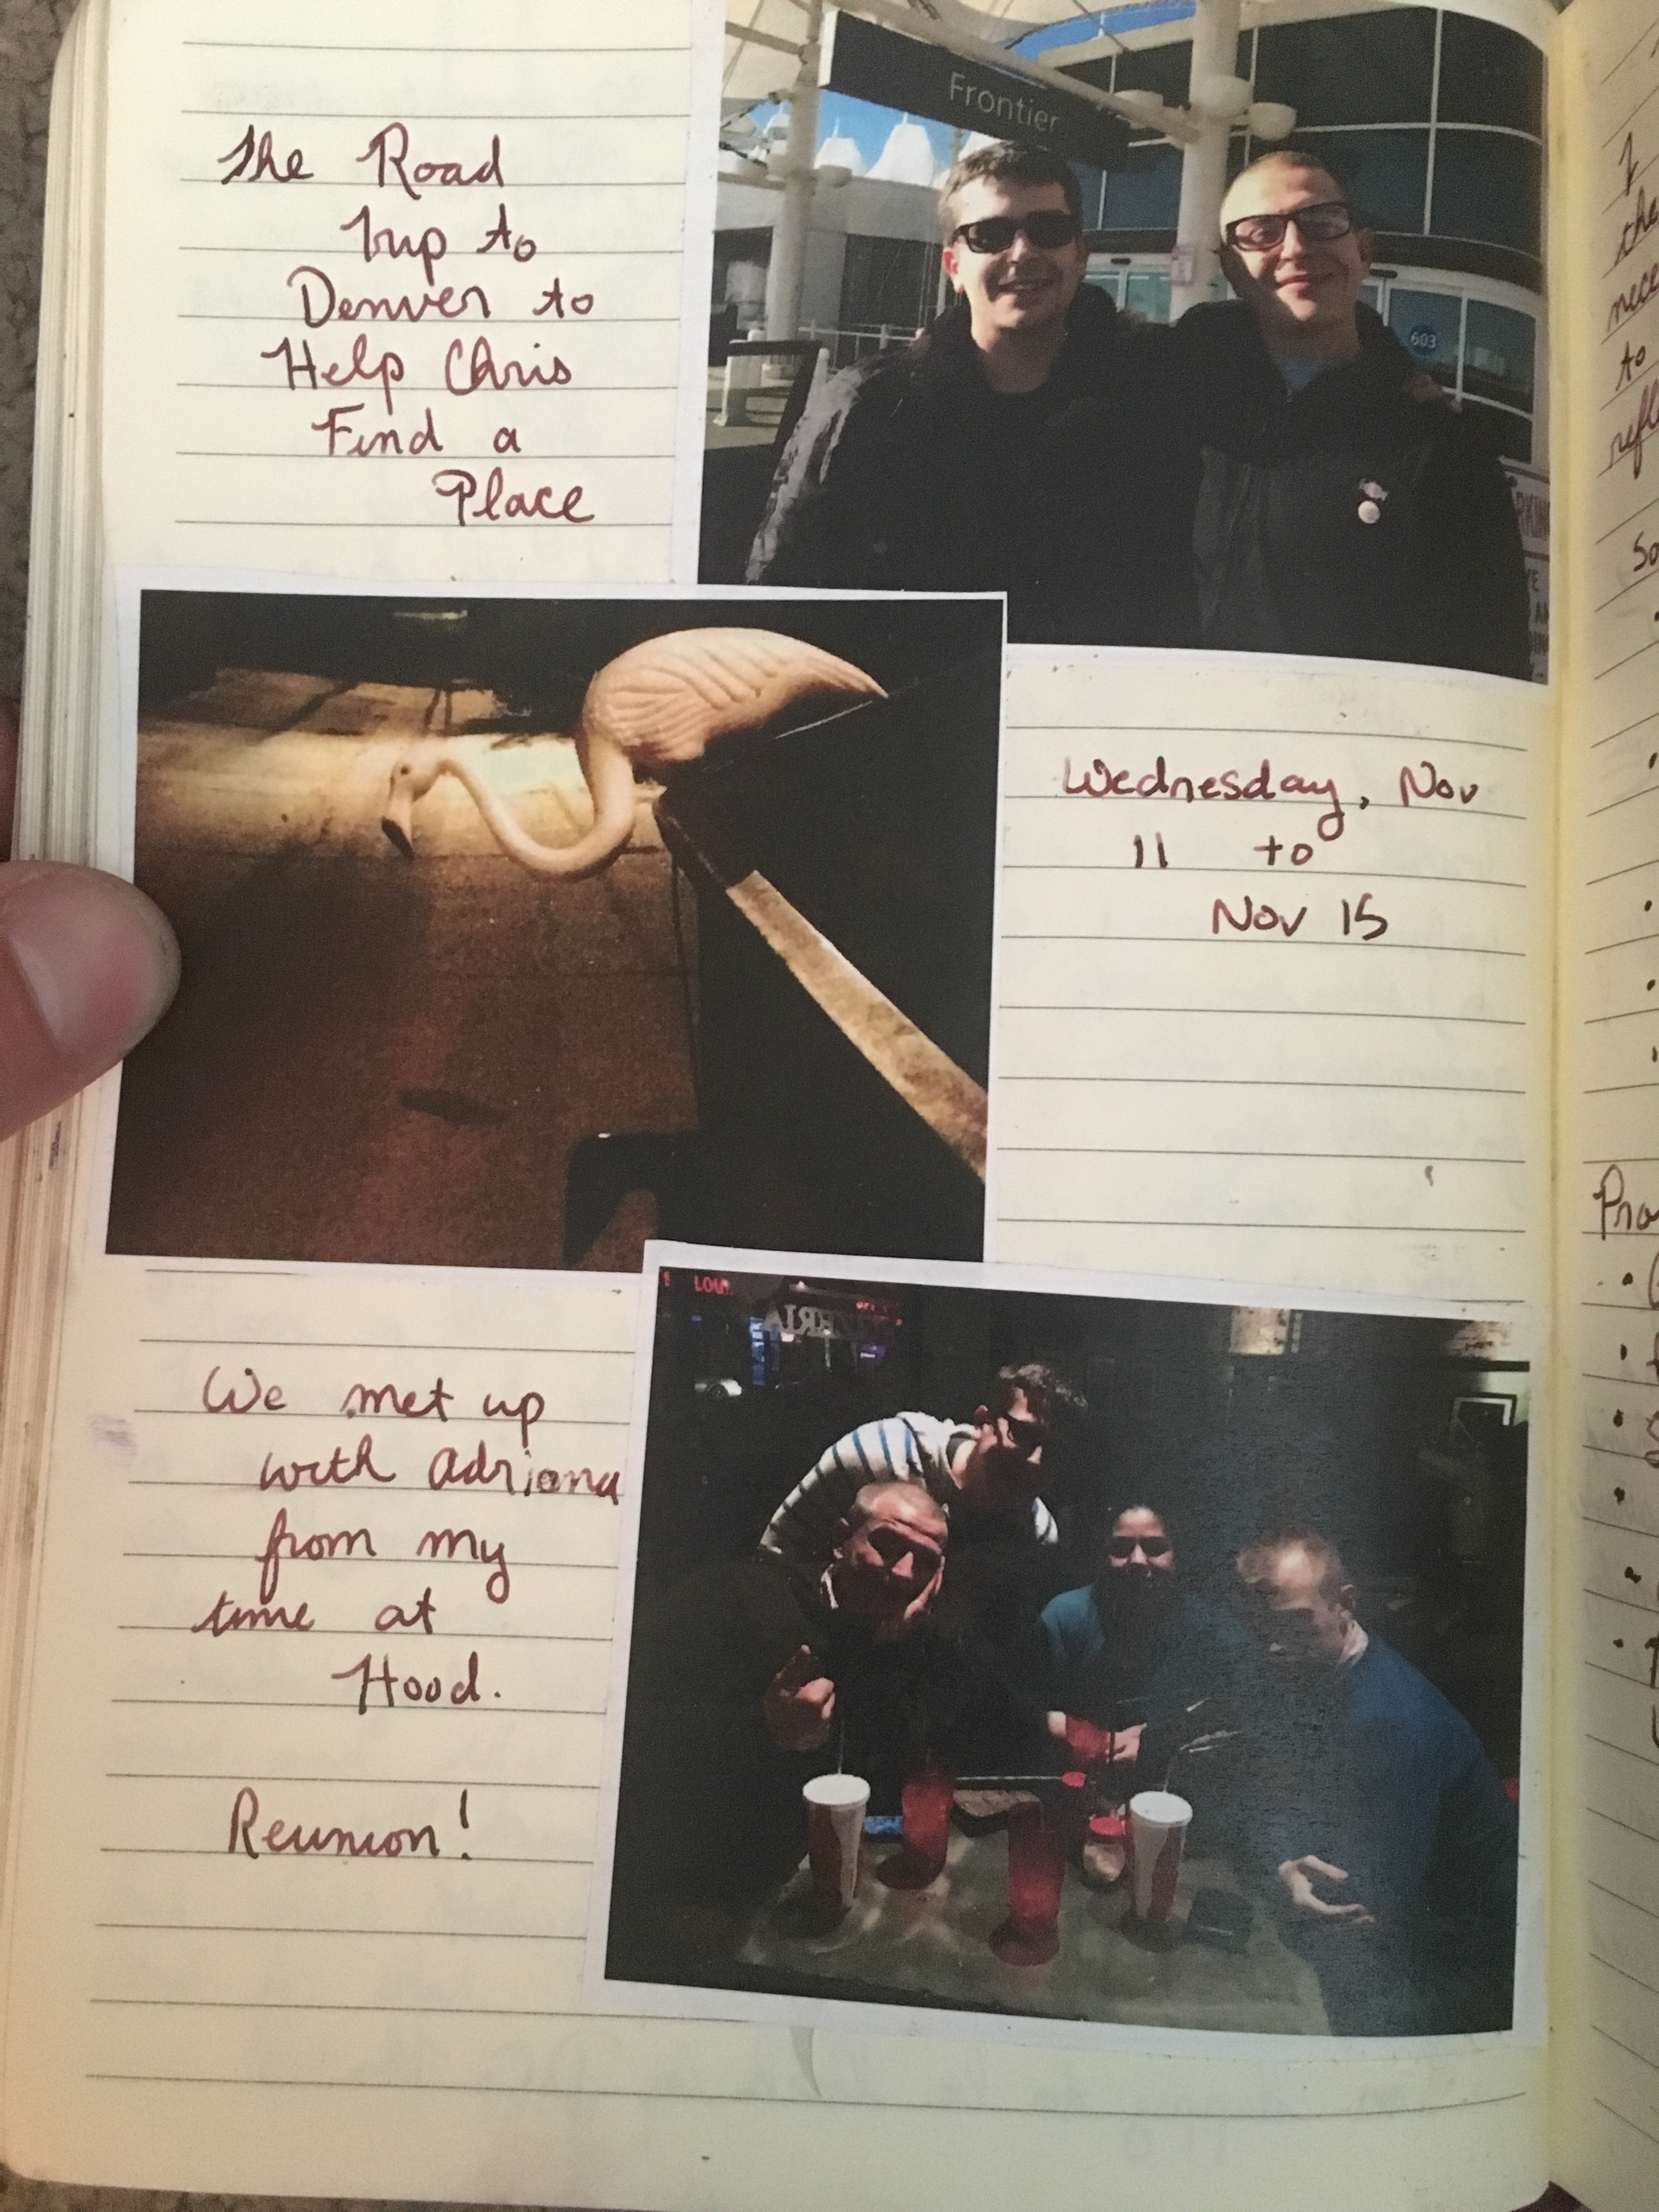 The Road
Trip to
Denver to
Help Chris
Find a
Place
Frontier
603
Wednesday, Nov
11 to
Nov 15
We met up
with Adriana
from my
time at
Hood.
Reunion!
I
to
So